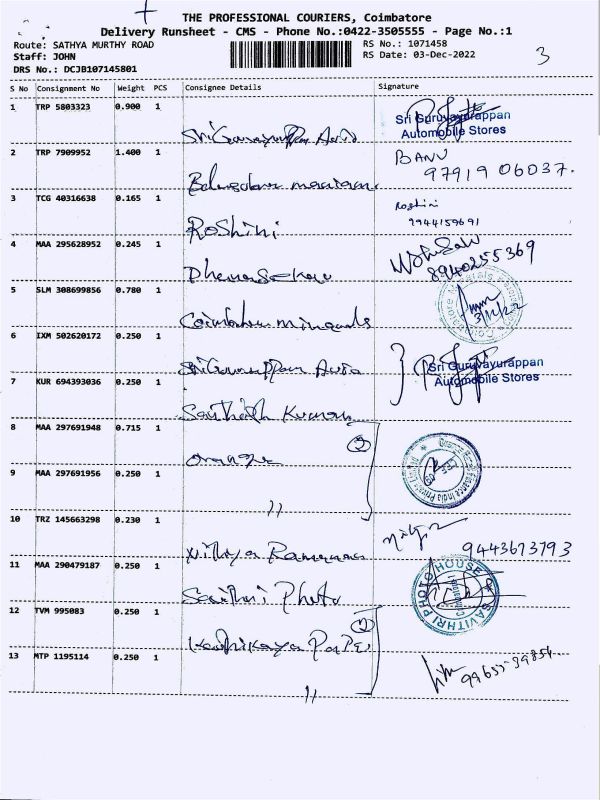 THE PROFESSIONAL COURIERS, Coimbatore
Delivery Runsheet - CMS - Phone No.:0422-3505555 - Page No.:1
Route: SATHYA MURTHY ROAD
RS No.: 1071458
Staff: JOHN
RS Date: 03-Dec-2022
3
DRS No.: DCJB107145801
S No Consignment No Weight PCS Consignee Details Signature
1 TRP 5803323 0.900 1
Sri Guruvayurappan
Automobile Stores
2 TRP 7909952 1.400 1
BANU
97919 06037.
3 TCG 40316638 0.165 1
Roshini
Roshini
9944159691
4 MAA 295628952 0.245 1
8940255369
5 SLM 308699856 0.780 1
Coimbatore minerals
3/12/22
6 IXM 502620172 0.250 1
Sri Guruvayurappan
Automobile Stores
7 KUR 694393036 0.250 1
Santhosh Kumar
8 MAA 297691948 0.715 1
(2)
orange
9 MAA 297691956 0.250 1
11
10 TRZ 145663298 0.230 1
9443673793
11 MAA 290479187 0.250 1
Savithri Photo
SAVITHRI PHOTO HOUSE
12 TVM 995083 0.250 1
(2)
13 MTP 1195114 0.250 1
99655-39854
11